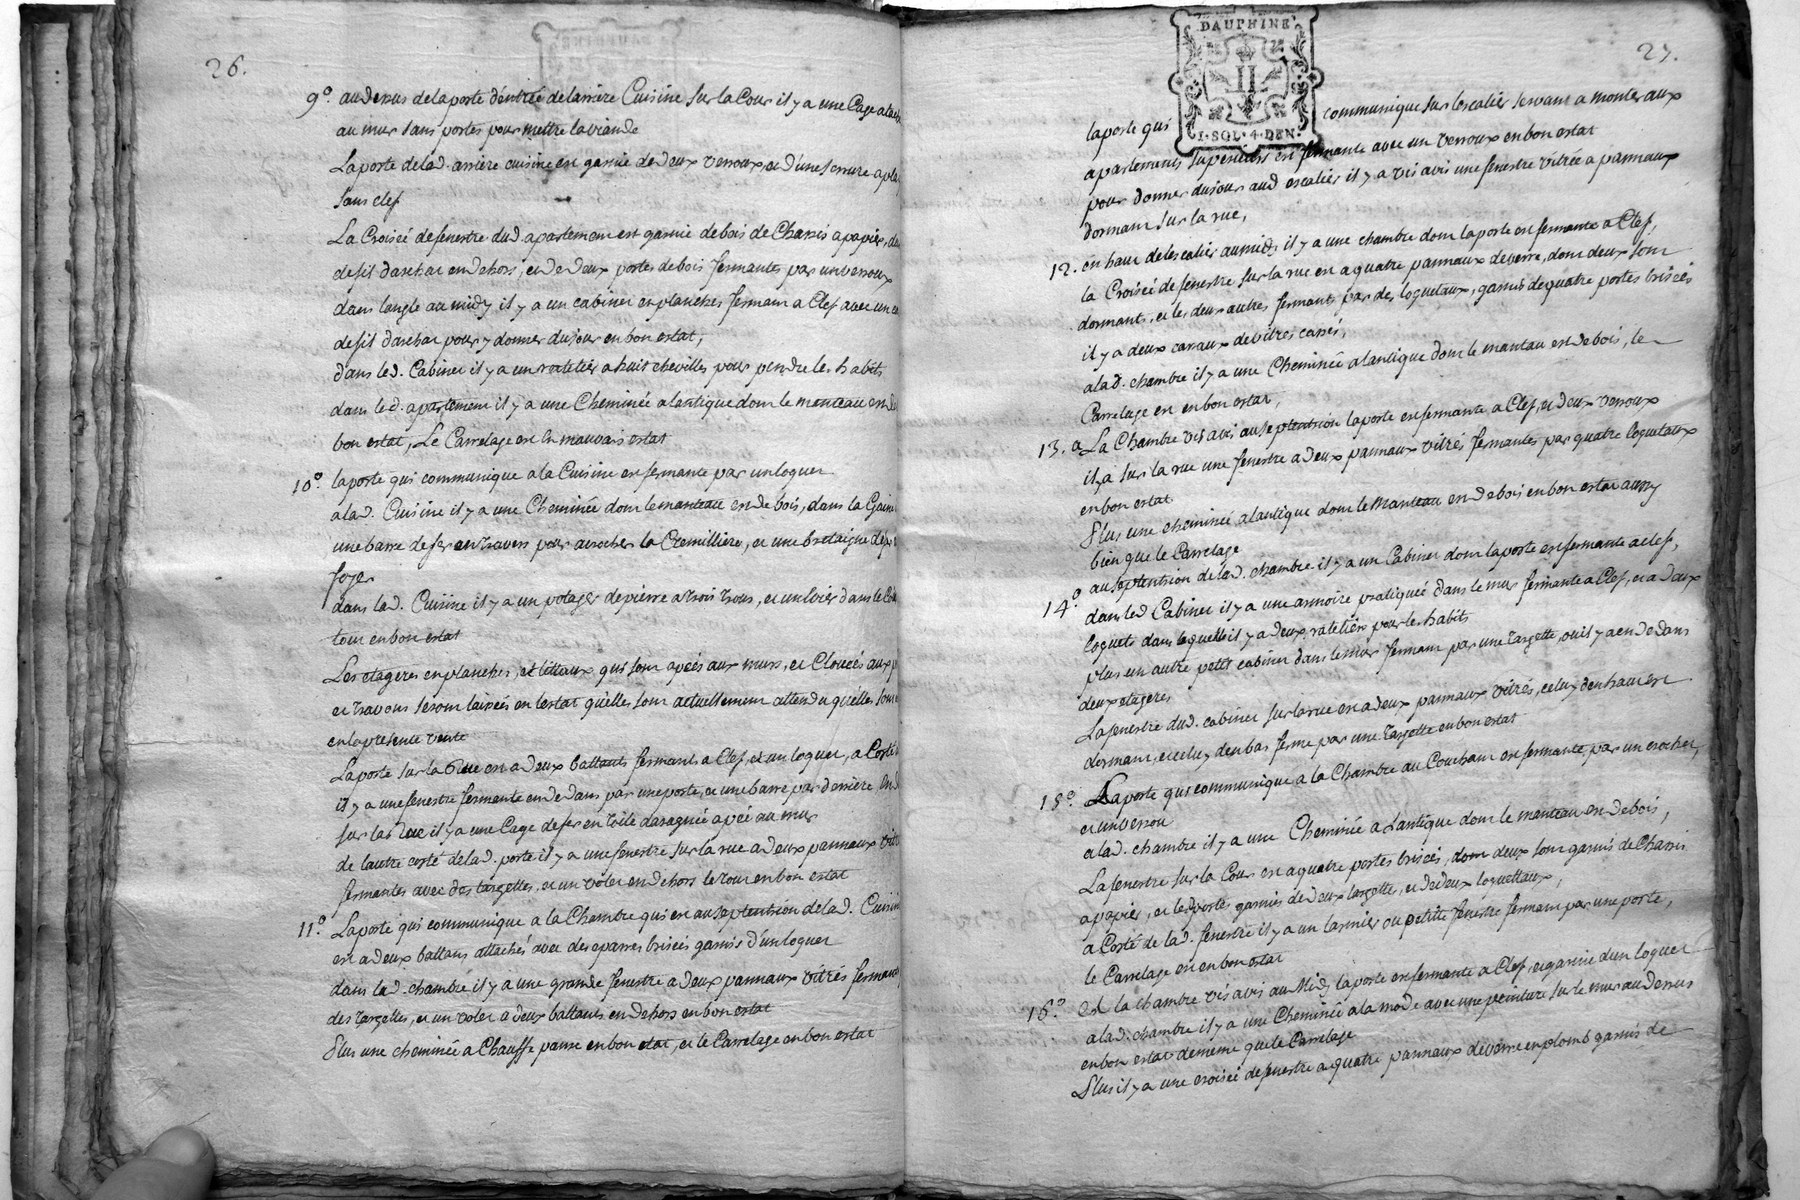 26.
9°. audessus de la porte d'entrée de larrière Cuisine sur la Cour il y a une Cage
au mur sans portes pour mettre la viande
La porte de lad. arrière cuisine est garnie de deux verroux et d'une serrure
sans clef
La Croiseé de fenestre dud. apartement est garnie de bois de Chassis a papier,
de fil darchal en dehors, et de deux portes de bois fermantes par un verroux
dans langle au midy il y a un cabinet en planches fermant a Clef avec un
de fil darchal pour y donner du jour en bon estat,
dans led. Cabinet il y a un ratelier a huit chevilles pour pendre les habits
dans led. apartement il y a une Cheminée a lantique dont le manteau est
bon estat, Le Carrelage est en mauvais estat
10°. la porte qui communique a la Cuisine est fermante par un loquet
a lad. Cuisine il y a une Cheminée dont le manteau est de bois, dans la
une barre de fer en travers pour acrocher la Cremilliere, et une bretaigne
foyer
dans lad. Cuisine il y a un potager de pierre a trois trous, et un
tour en bon estat
Les etageres en planches, et litteaux qui sont apéés aux murs, et Clouées aux
et travons seront laisées en lestat quelles sont actuellement attendu quelles sont
en la presente vente
La porte sur la Rue est a deux battants fermants a Clef, et un loquet, a Costé
il y a une fenestre fermante en dedans par une porte, et une barre par derrière
sur la rue il y a une Cage de fer en toile daragnée apéé au mur
de lautre costé de lad. porte il y a une fenestre sur la rue a deux pannaux
fermantes avec des targettes, et un volet en dehors le tout en bon estat
11°. La porte qui communique a la Chambre qui est au septentrion de lad.
est a deux battans attachés avec des eparres brisées garnis d'un loquet
dans lad. chambre il y a une grande fenestre a deux pannaux vitrés
des targettes, et un volet a deux battants en dehors en bon estat
Plus une cheminée a Chauffe panse en bon etat, et le Carrelage en bon estat
27.
DAUPHINE
II
1·SOL·4·DEN
la porte qui communique sur lescalier servant a monter aux
apartements superieurs est fermante avec un verroux en bon estat
pour donner du jour aud escalier il y a vis avis une fenestre vitrée a pannaux
dormant sur la rue,
12. en haut de lescalier au midy il y a une chambre dont la porte est fermante a Clef,
la Croiseé de fenestre sur la rue est a quatre pannaux de verre, dont deux sont
dormants, et les deux autres fermants par des loquetaux, garnis de quatre portes brisées
il y a deux carraux de vitres cassés,
a lad. chambre il y a une Cheminée a lantique dont le manteau est de bois, le
Carrelage est en bon estat,
13. a La Chambre vis avis au septentrion la porte est fermante a Clef, et deux verroux
il y a sur la rue une fenestre a deux pannaux vitrés fermantes par quatre loquetaux
en bon estat
Plus une cheminée a lantique dont le Manteau est de bois en bon estat aussy
bien que le Carrelage
14° au septentrion de lad. chambre il y a un Cabinet dont la porte est fermante a clef,
dans led Cabinet il y a une armoire pratiquée dans le mur fermante a Clef, et a deux
loquets dans laquelle il y a deux rateliers pour les habits
plus un autre petit cabinet dans le mur fermant par une targette, ou il y a en dedans
deux etageres
La fenestre dud. cabinet sur la rue est a deux pannaux vitrés, celuy den haut est
dormant, et celuy den bas ferme par une targette en bon estat
15°. La porte qui communique a la Chambre au Couchant est fermante par un crochet,
et un verrou
a lad. chambre il y a une Cheminée a Lantique dont le manteau est de bois,
La fenestre sur la Cour est a quatre portes brisées, dont deux sont garnis de Chassis
a papier, et lesd. portes garnies de deux targettes, et de deux loquettaux,
a Costé de la d. fenestre il y a un larmier ou petitte fenestre fermant par une porte,
le Carrelage est en bon estat
16°. Et la chambre vis avis au Midy la porte est fermante a Clef, et garnie d'un loquet
a lad. chambre il y a une Cheminée a la mode avec une peinture sur le mur au dessus
en bon estat de meme que le Carrelage
Plus il y a une croisée de fenestre a quatre pannaux de verre en plomb garnis de